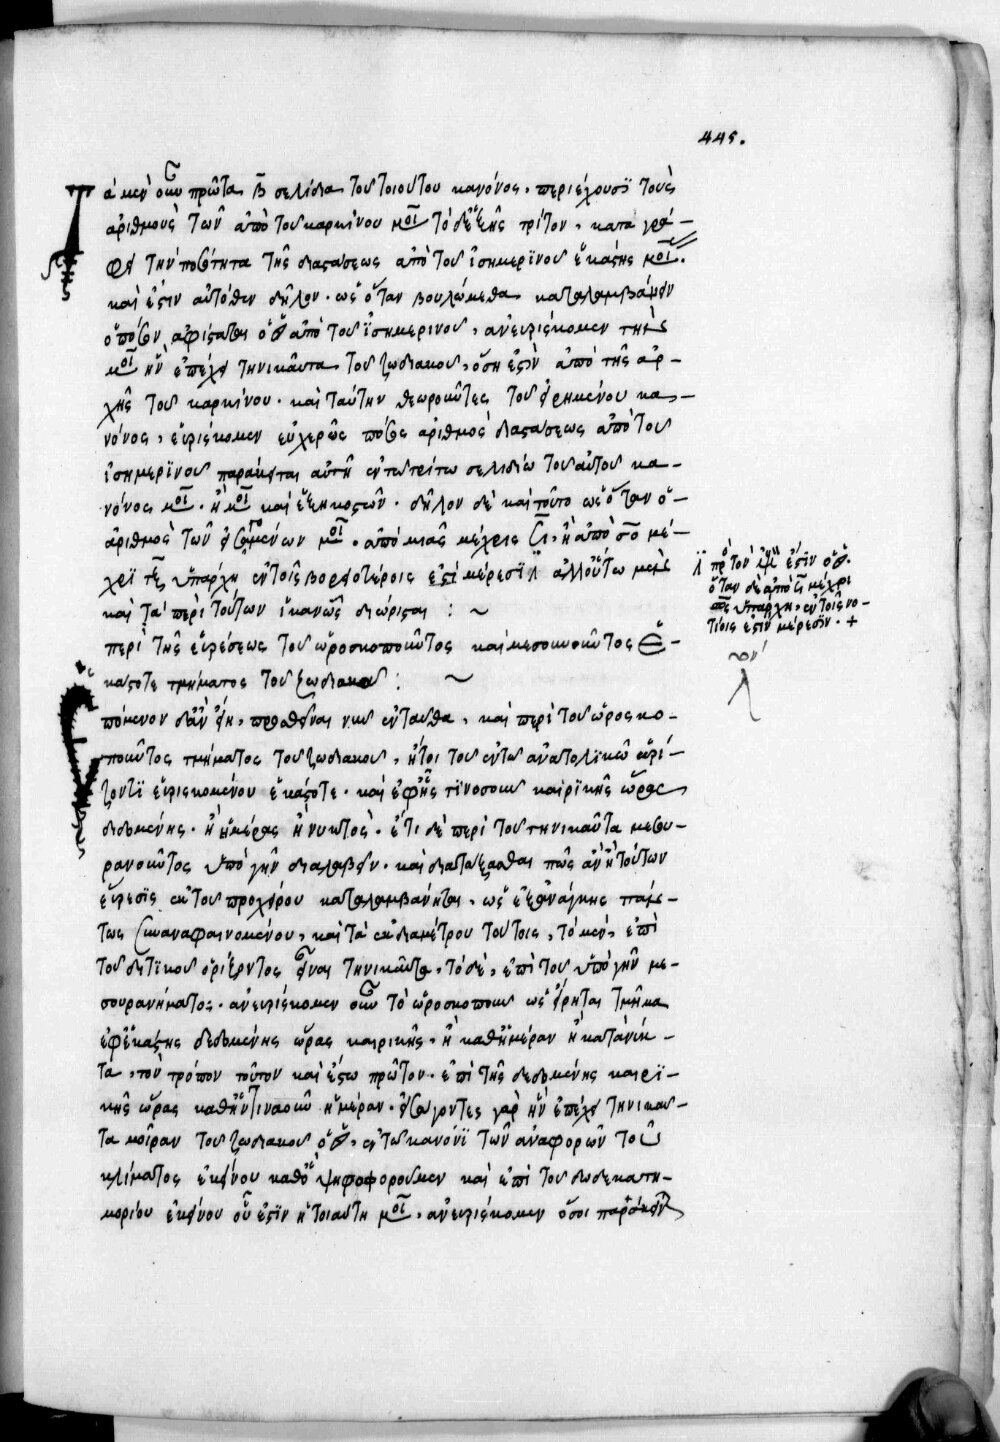 445.
Τὰ μὲν οὖν πρῶτα β̄ σελίδια τοῦ τοιούτου κανόνος, περιέχουσι τοὺς
ἀριθμοὺς τῶν ἀπὸ τοῦ καρκίνου μοι τὸ δὲ ἑξῆς τρίτον, καταγρά-
φει τὴν ποσότητα τῆς διαστάσεως ἀπὸ τοῦ ἰσημερινοῦ ἑκάστης μοι.
καὶ ἔστιν αὐτόθεν δῆλον. ὡς ὅταν βουλώμεθα καταλαμβάνειν
ὁπόσον ἀφίσταται ὁ ☉ ἀπὸ τοῦ ἰσημερινοῦ, ἀνευρίσκομεν
μοι ἣν ἐπέχει τηνικαῦτα τοῦ ζωδιακοῦ, ὅση ἐστὶν ἀπὸ τῆς ἀρ-
χῆς τοῦ καρκίνου. καὶ ταύτην θεωροῦντες τοῦ εἰρημένου κα-
νόνος, εὑρίσκομεν εὐχερῶς πόσος ἀριθμὸς διαστάσεως ἀπὸ τοῦ
ἰσημερινοῦ παράκειται αὐτῇ ἐν τῷ τρίτῳ σελιδίῳ τοῦ αὐτοῦ κα-
νόνος μοι. ἢ μοι καὶ ἑξηκοστῶν. δῆλον δὲ καὶ τοῦτο ὡς ὅταν ὁ
ἀριθμὸς τῶν εἰσαγομένων μοι. ἀπὸ μιᾶς μέχρις ἢ ἀπὸ σο μέ-
χρι τξ ὑπάρχῃ ἐν τοῖς βορειοτέροις ἐστὶ μέρεσιν ἀλλ' οὕτω μὲν
καὶ τὰ περὶ τούτων ἱκανῶς διώρισται : ~
πρὸ τὸν ἰσημερινὸν ἐστιν ὁ ☉.
ὅταν δὲ ἀπὸ μέχρι
ὑπάρχῃ, ἐν τοῖς νο-
τίοις ἐστὶν μέρεσιν. +
περὶ τῆς εὑρέσεως τοῦ ὡροσκοποῦντος καὶ μεσουρανοῦντος ἑ-
κάστοτε τμήματος τοῦ ζωδιακοῦ : ~
Ἑπόμενον δ' ἂν εἴη, προσθεῖναι νῦν ἐνταῦθα, καὶ περὶ τοῦ ὡροσκο-
ποῦντος τμήματος τοῦ ζωδιακοῦ, ἤτοι τοῦ ἐν τῷ ἀνατολικῷ ὁρί-
ζοντι εὑρισκομένου ἑκάστοτε. καὶ ἐφεξῆς τίνος οὖν καιρικῆς ὥρας
διδομένης. ἢ ἡμέρας ἢ νυκτὸς. ἔτι δὲ περὶ τοῦ τηνικαῦτα μεσου-
ρανοῦντος ὑπὸ γῆν διαλαβεῖν. καὶ διατάξασθαι πῶς ἂν ἡ τούτων
εὕρεσις ἐκ τοῦ προχείρου καταλαμβάνηται, ὡς ἐξ ἀνάγκης πάν-
τως συναναφαινομένου, καὶ τὰ ἐκ διαμέτρου τούτοις, τὸ μὲν, ἐπὶ
τοῦ δυτικοῦ ὁρίζοντος εἶναι τηνικαῦτα, τὸ δὲ, ἐπὶ τοῦ ὑπὸ γῆν με-
σουρανήματος. ἀνευρίσκομεν οὖν τὸ ὡροσκοποῦν ὡς εἴρηται τμῆμα
ἐφ' ἑκάστης δεδομένης ὥρας καιρικῆς, ἢ καθ' ἡμέραν ἢ κατὰ νύκ-
τα, τὸν τρόπον τοῦτον καὶ ἔστω πρῶτον. ἐπὶ τῆς δεδομένης καιρι-
κῆς ὥρας καθ' ἥντινα οὖν ἡμέραν. εἰσάγοντες γὰρ ἣν ἐπέχει τηνικαῦ-
τα μοῖραν τοῦ ζωδιακοῦ ὁ ☉, ἐν τῷ κανόνι τῶν ἀναφορῶν τοῦ
κλίματος ἐκείνου καθ' ὃ ψηφοφοροῦμεν καὶ ἐπὶ τοῦ δωδεκατη-
μορίου ἐκείνου οὗ ἐστιν ἡ τοιαύτη μοι, ἀνευρίσκομεν ὅσοι παράκειν